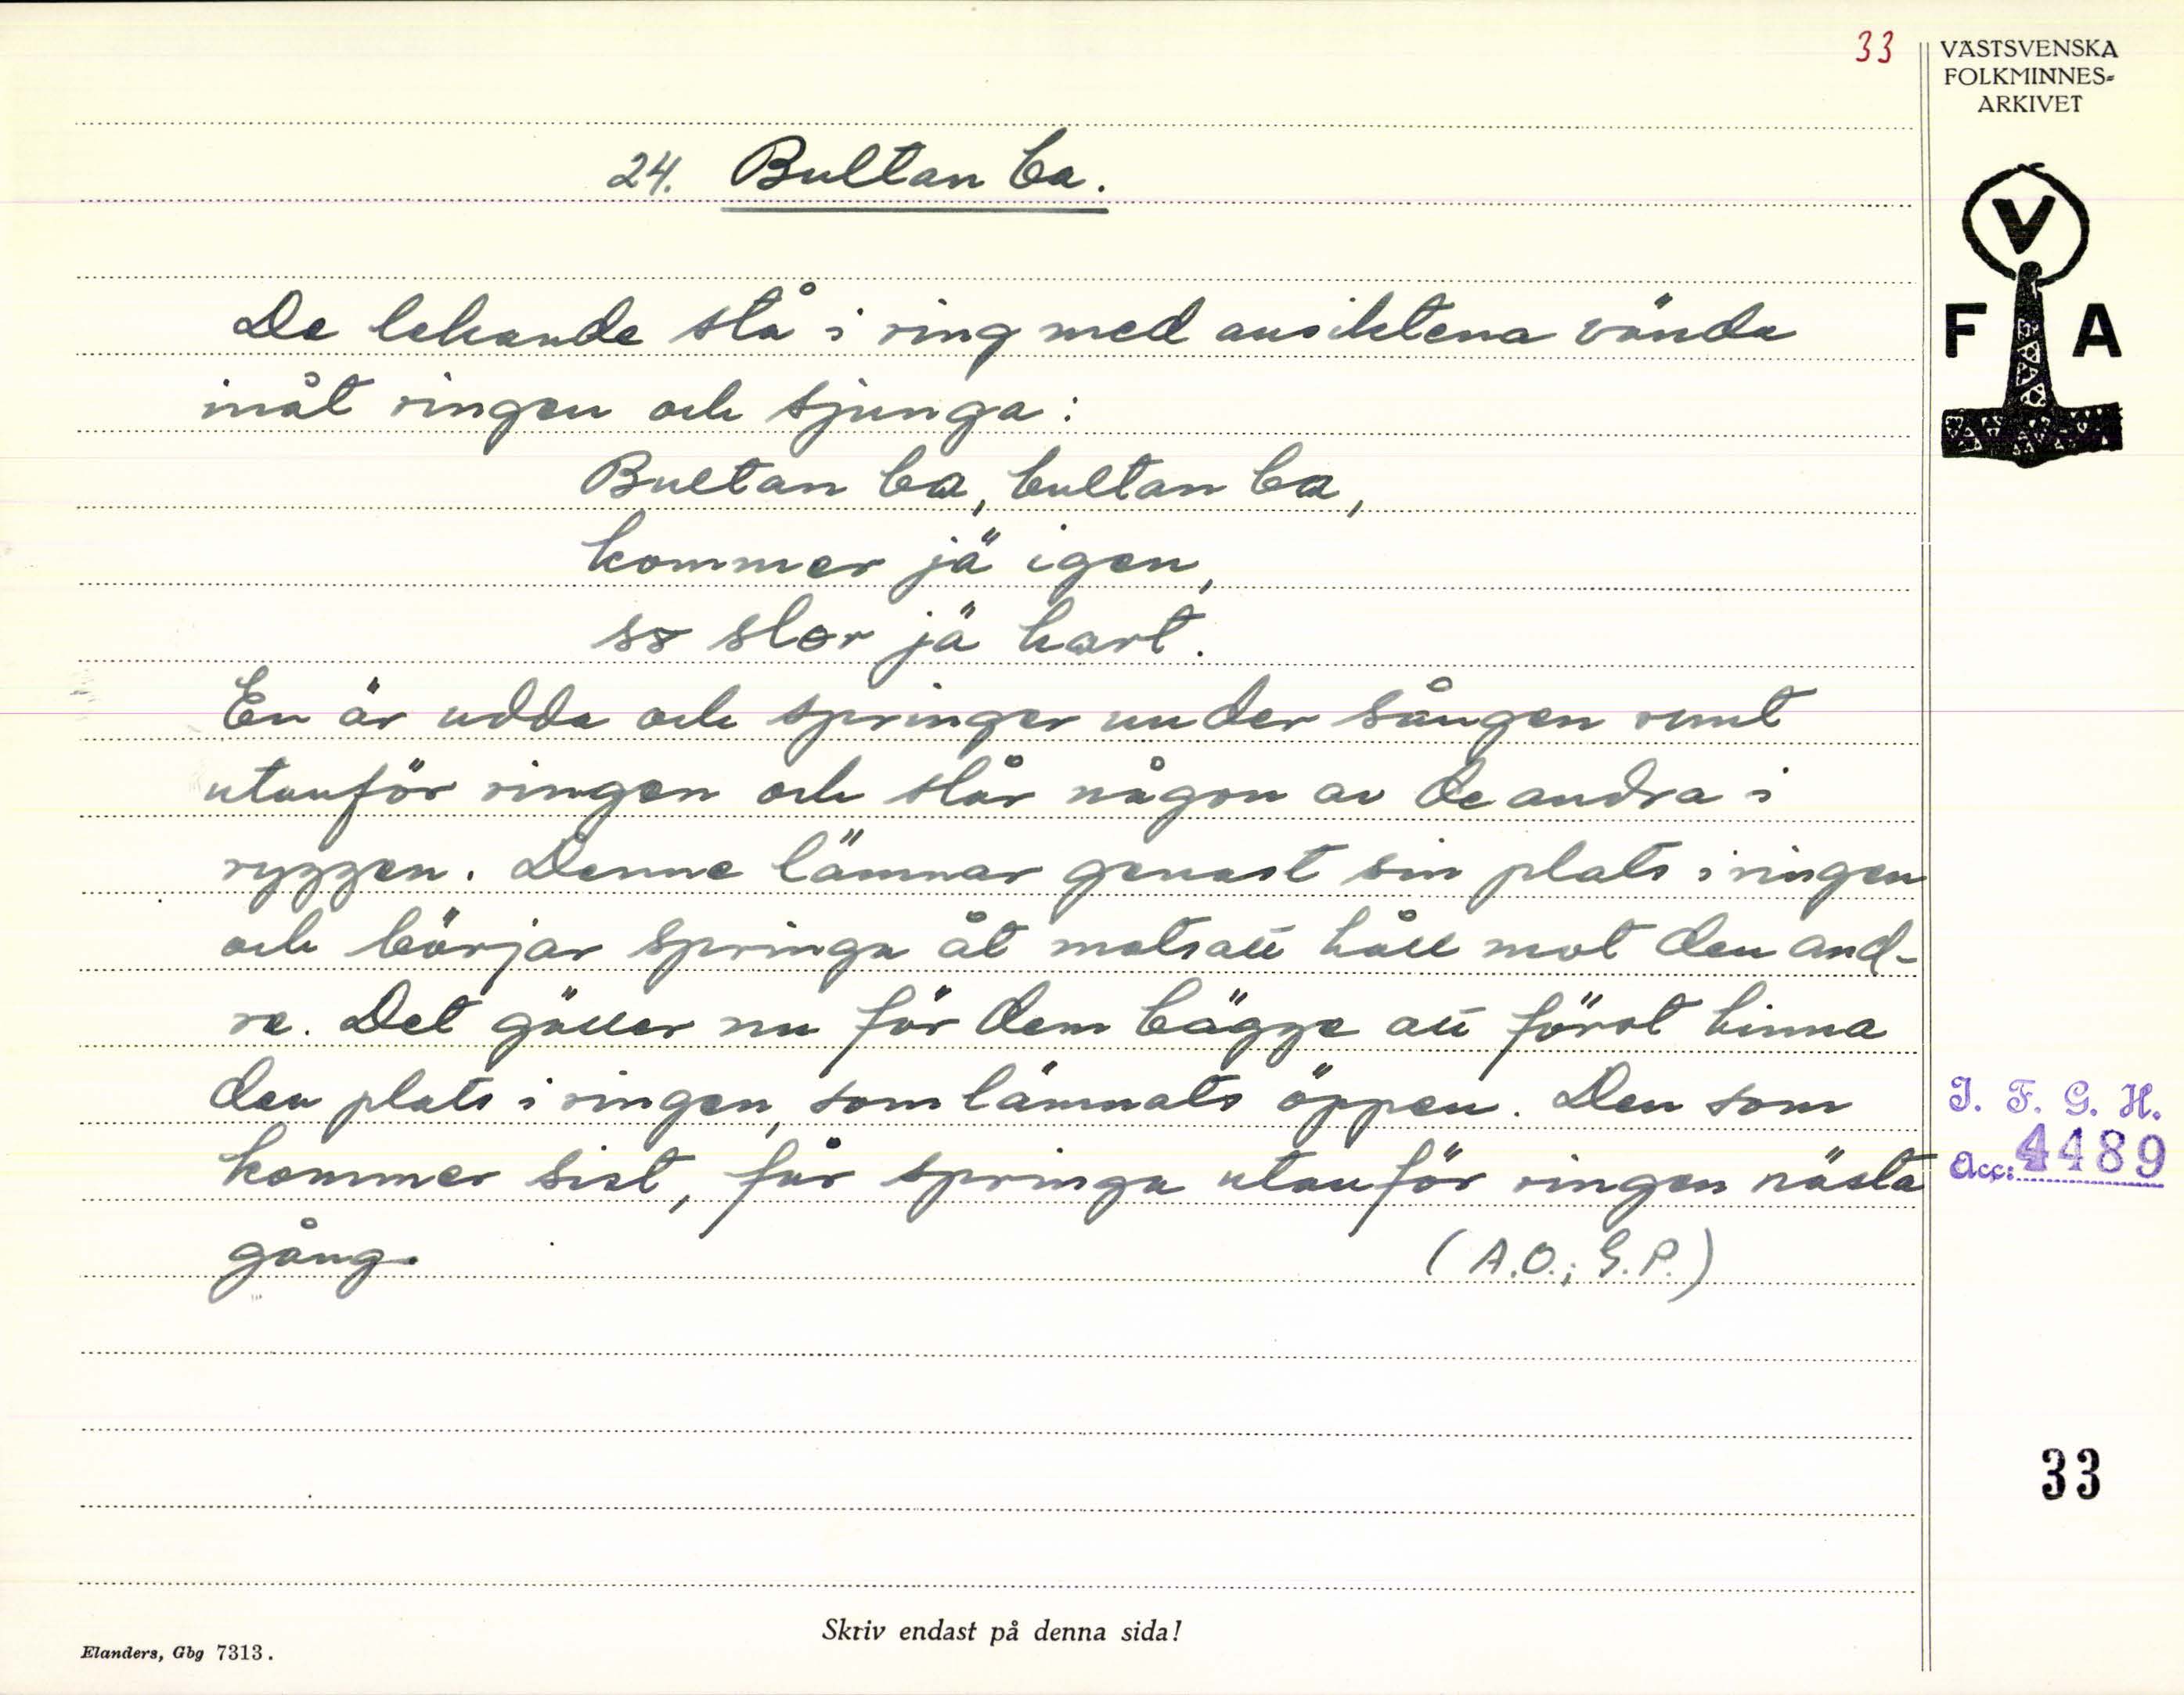 33
VÄSTSVENSKA
FOLKMINNES=
ARKIVET
V
F A
24. Bultan ba.
De lekande stå i ring med ansiktena vända
inåt ringen och sjunga:
Bultan ba, bultan ba,
kommer jä igen,
slor jä hart.
En är udda och springer under sången runt
utanför ringen och slår någon av de andra i
ryggen. Denne lämnar genast sin plats i ringen
och börjar springa åt motsatt håll mot den and-
re. Det gäller nu för dem bägge att först hinna
den plats i ringen, som lämnats öppen. Den som
kommer sist, får springa utanför ringen nästa
gång.
(A.O.; G.P.)
I. F. G. H.
Acc: 4489
33
Skriv endast på denna sida!
Elanders, Gbg 7313.